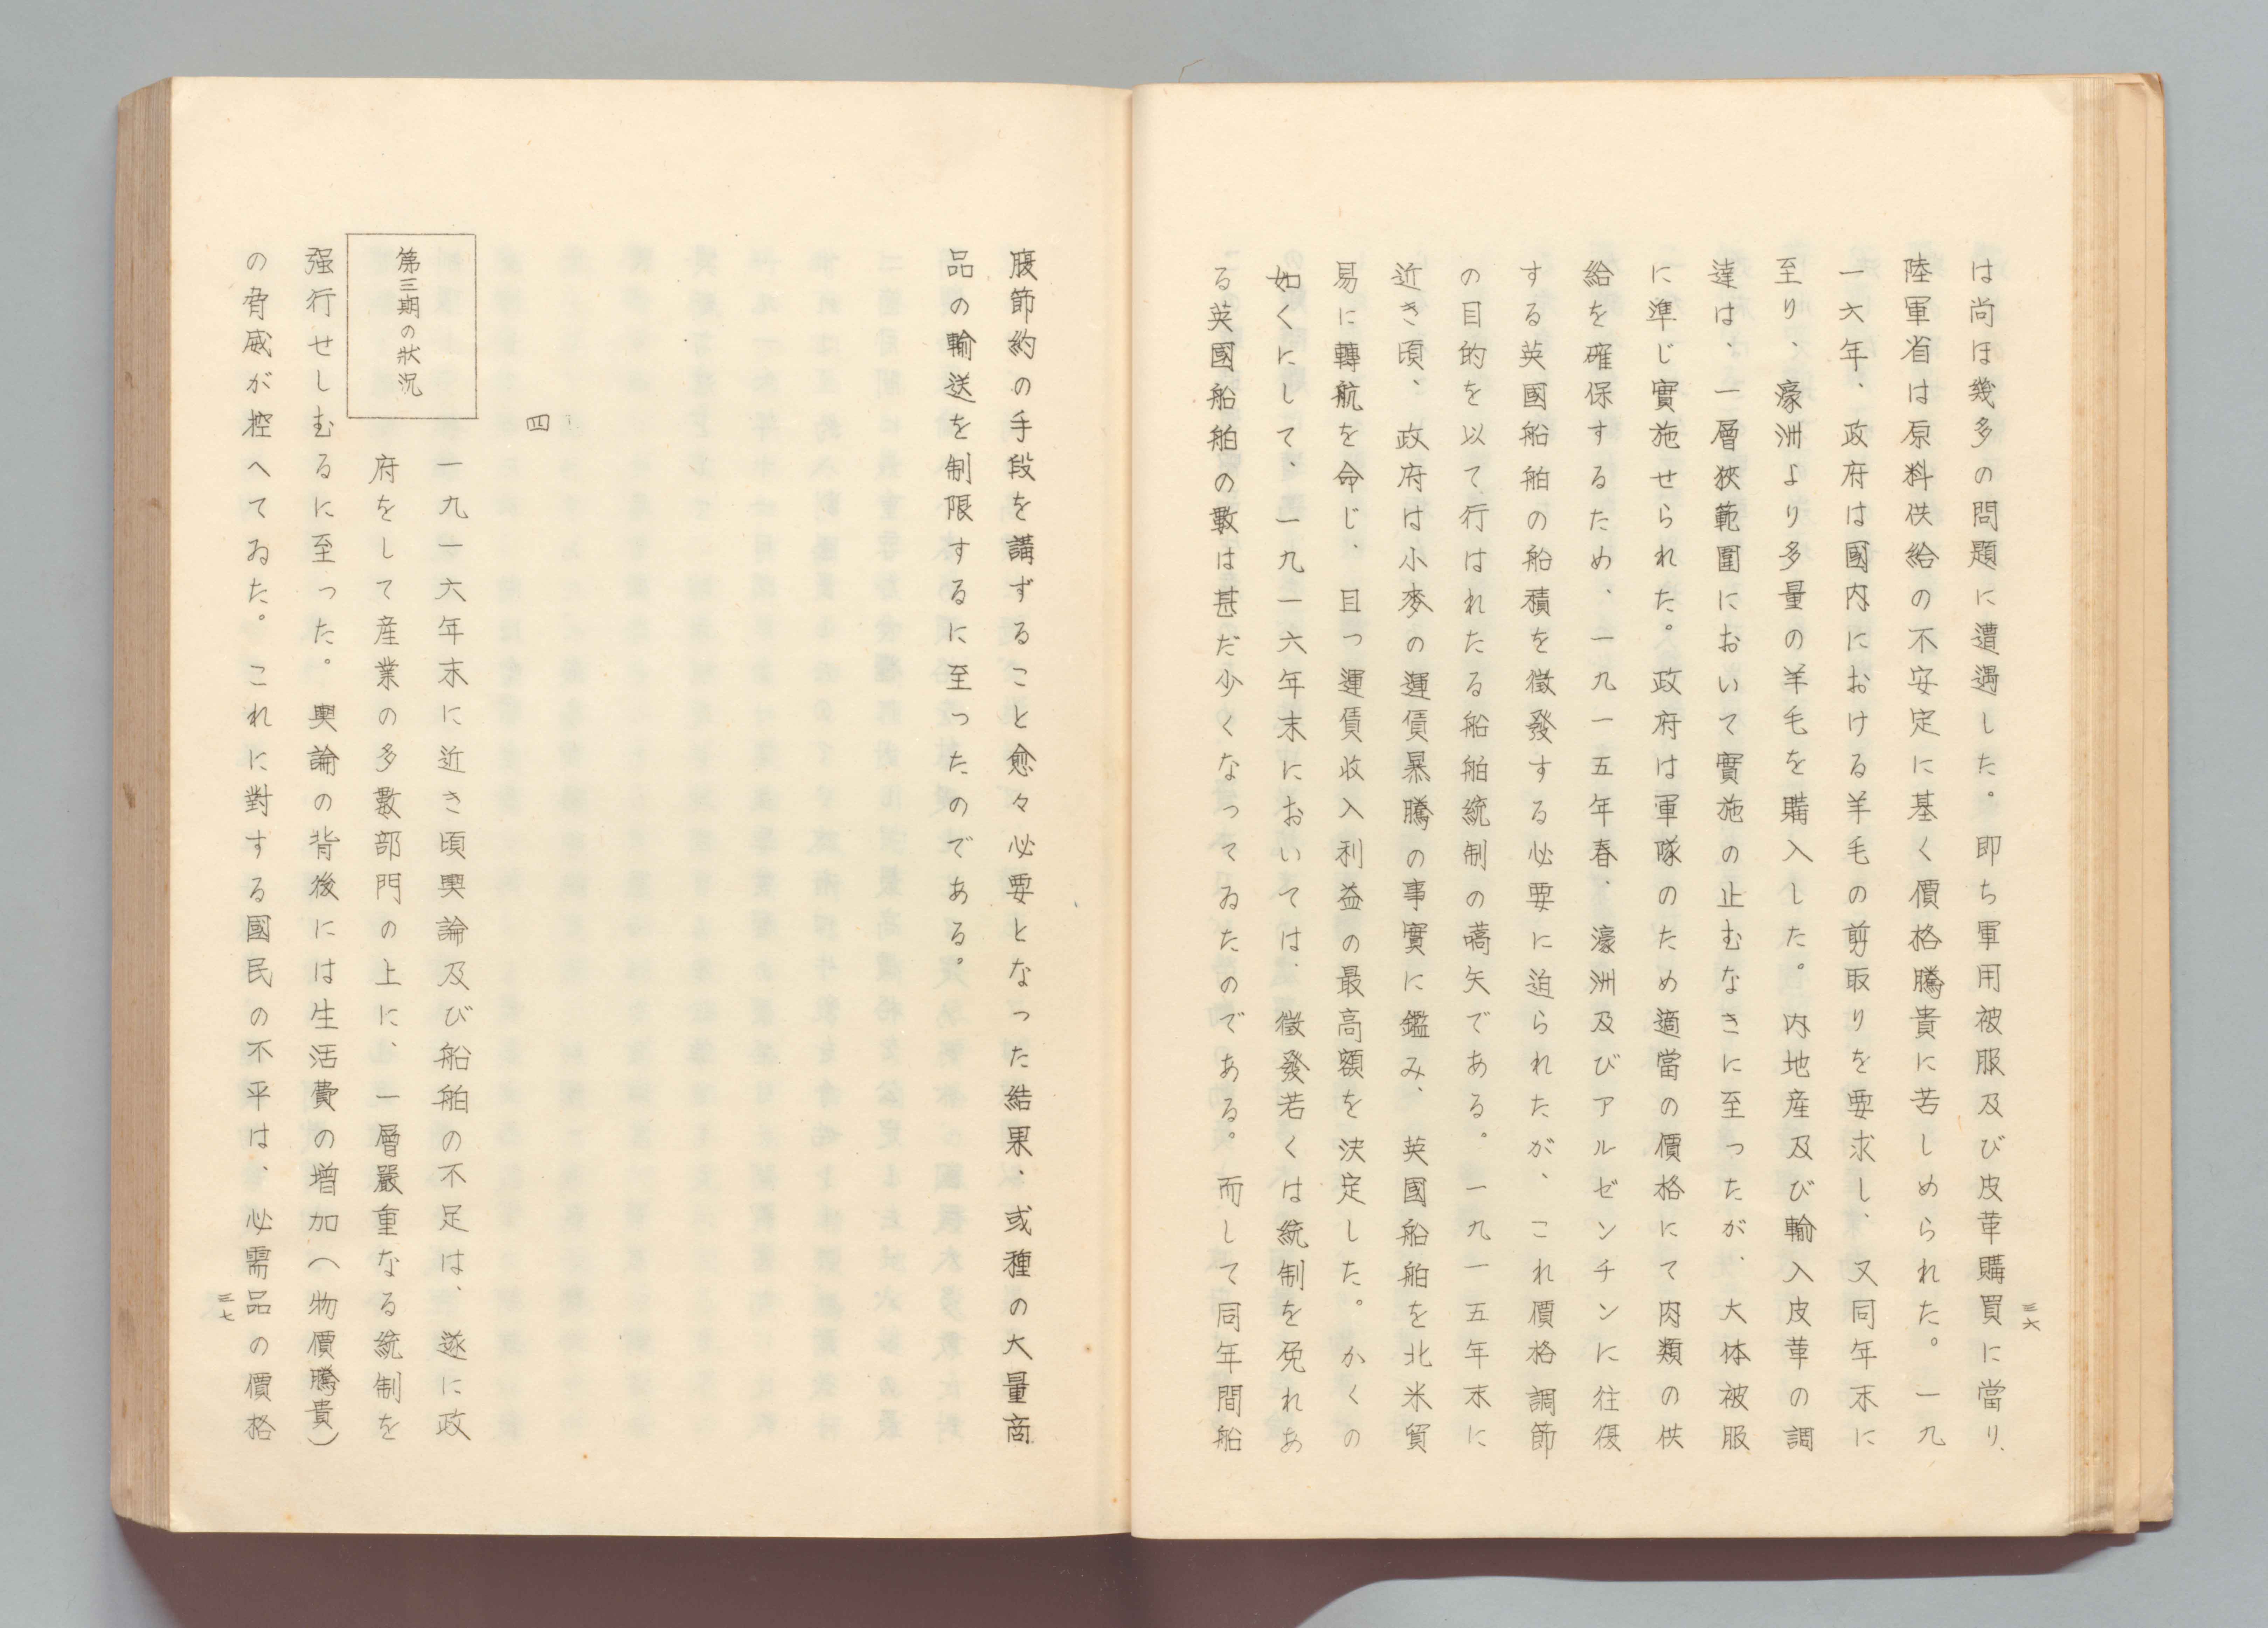 は尚ほ幾多の問題に遭遇した。即ち軍用被服及び皮革購買に當り、
陸軍省は原料供給の不安定に基く價格騰貴に苦しめられた。一九
一六年、政府は國内における羊毛の剪取りを要求し、又同年末に
至り、濠洲より多量の羊毛を購入した。内地産及び輸入皮革の調
達は、一層狹範圍において實施の止むなきに至つたが、大体被服
に準じ實施せられた。政府は軍隊のため適當の價格にて肉類の供
給を確保するため、一九一五年春、濠洲及びアルゼンチンに往復
する英國船舶の船積を徴發する必要に迫られたが、これ價格調節
の目的を以て行はれたる船舶統制の嚆矢である。一九一五年末に
近き頃、政府は小麥の運賃暴騰の事實に鑑み、英國船舶を北米貿
易に轉航を命じ、且つ運賃收入利益の最高額を決定した。かくの
如くにして、一九一六年末においては、徴發若くは統制を免れあ
る英國船舶の數は甚だ少くなつてゐたのである。而して同年間船
三六
腹節約の手段を講ずること愈々必要となつた結果、或種の大量商
品の輸送を制限するに至つたのである。
四
第三期の狀況
一九一六年末に近き頃輿論及び船舶の不足は、遂に政
府をして産業の多數部門の上に、一層嚴重なる統制を
强行せしむるに至つた。輿論の背後には生活費の增加(物價騰貴)
の脅威が控へてゐた。これに對する國民の不平は、必需品の價格
三七